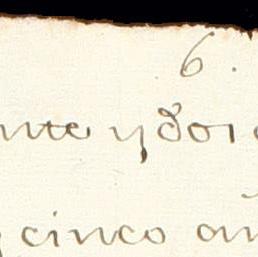 6.
nte y dos
cinco